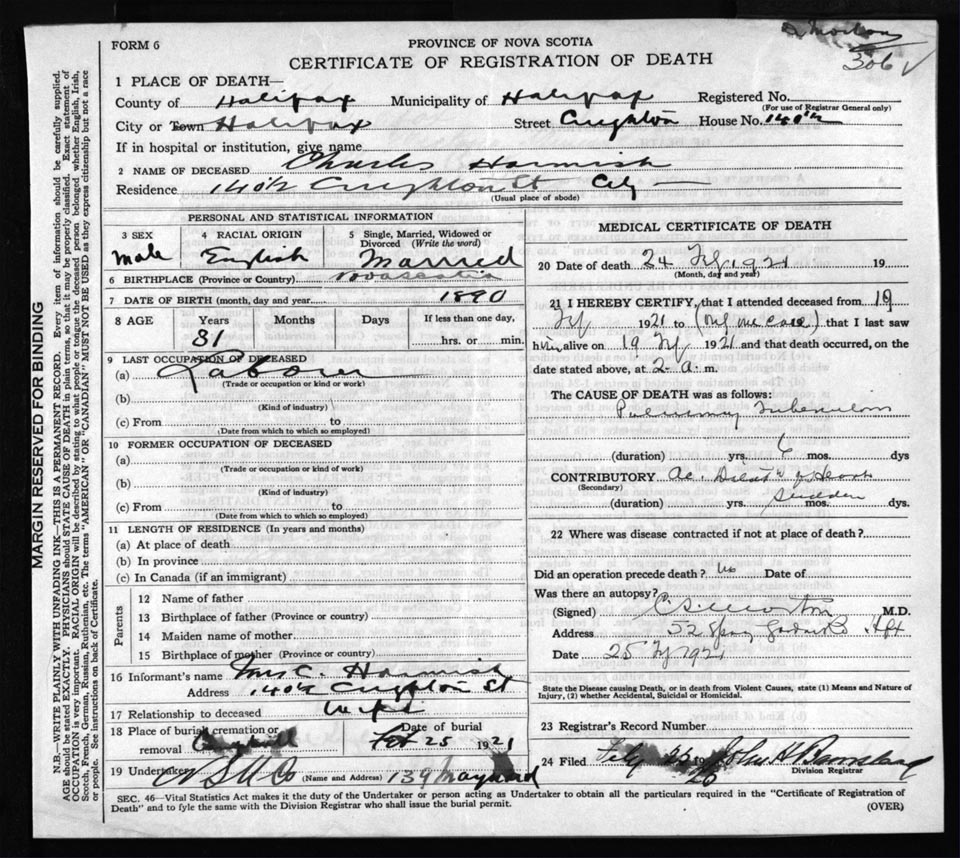 306 ✓
FORM 6
PROVINCE OF NOVA SCOTIA
CERTIFICATE OF REGISTRATION OF DEATH
1 PLACE OF DEATH—
County of Halifax Municipality of Halifax Registered No.
(For use of Registrar General only)
City or Town Halifax Street Creighton House No. 140½
If in hospital or institution, give name
2 NAME OF DECEASED Charles Harnish
Residence 140½ Creighton St City —
(Usual place of abode)
PERSONAL AND STATISTICAL INFORMATION
3 SEX 4 RACIAL ORIGIN 5 Single, Married, Widowed or Divorced (Write the word)
Male English Married
6 BIRTHPLACE (Province or Country) Nova Scotia
7 DATE OF BIRTH (month, day and year) 1890
8 AGE Years Months Days If less than one day,
31 hrs. or min.
9 LAST OCCUPATION OF DECEASED
(a) Labourer
(Trade or occupation or kind or work)
(b)
(Kind of industry)
(c) From to
(Date from which to which so employed)
10 FORMER OCCUPATION OF DECEASED
(a)
(Trade or occupation or kind of work)
(b)
(Kind of industry)
(c) From to
(Date from which to which so employed)
11 LENGTH OF RESIDENCE (In years and months)
(a) At place of death
(b) In province
(c) In Canada (if an immigrant)
Parents
12 Name of father
13 Birthplace of father (Province or country)
14 Maiden name of mother
15 Birthplace of mother (Province or country)
16 Informant's name Mrs C. Harnish
Address 140½ Creighton St
17 Relationship to deceased Wife
18 Place of burial, cremation or removal Date of burial
Feb 25 1921
19 Undertaker (Name and Address) 139 Maynard
MEDICAL CERTIFICATE OF DEATH
20 Date of death 24 Fby 1921 19
(Month, day and year)
21 I HEREBY CERTIFY, that I attended deceased from 19
Fby 1921 to (only one call) that I last saw
him alive on 19 Fby 1921 and that death occurred, on the
date stated above, at 2 a. m.
The CAUSE OF DEATH was as follows:
Pulmonary Tuberculosis
(duration) yrs. 6 mos. dys
CONTRIBUTORY Ac. Dilatn of Heart
(Secondary) Sudden
(duration) yrs. mos. dys.
22 Where was disease contracted if not at place of death?
Did an operation precede death? no Date of
Was there an autopsy?
(Signed) M.D.
Address 52 Spring Garden Rd Hfx
Date 25 Fby 1921
State the Disease causing Death, or in death from Violent Causes, state (1) Means and Nature of Injury, (2) whether Accidental, Suicidal or Homicidal.
23 Registrar's Record Number
24 Filed John H
Division Registrar
SEC. 46—Vital Statistics Act makes it the duty of the Undertaker or person acting as Undertaker to obtain all the particulars required in the "Certificate of Registration of
Death" and to fyle the same with the Division Registrar who shall issue the burial permit. (OVER)
MARGIN RESERVED FOR BINDING
N.B.—WRITE PLAINLY WITH UNFADING INK—THIS IS A PERMANENT RECORD. Every item of information should be carefully supplied.
AGE should be stated EXACTLY. PHYSICIANS should STATE CAUSE OF DEATH in plain terms, so that it may be properly classified. Exact statement of
OCCUPATION is very important. RACIAL ORIGIN will be described by stating to what people or tongue the deceased person belonged, whether English, Irish,
Scotch, French, German, Russian, Ruthenian, etc. The terms "AMERICAN" OR "CANADIAN" MUST NOT BE USED as they express citizenship but not a race
or people. See instructions on back of Certificate.